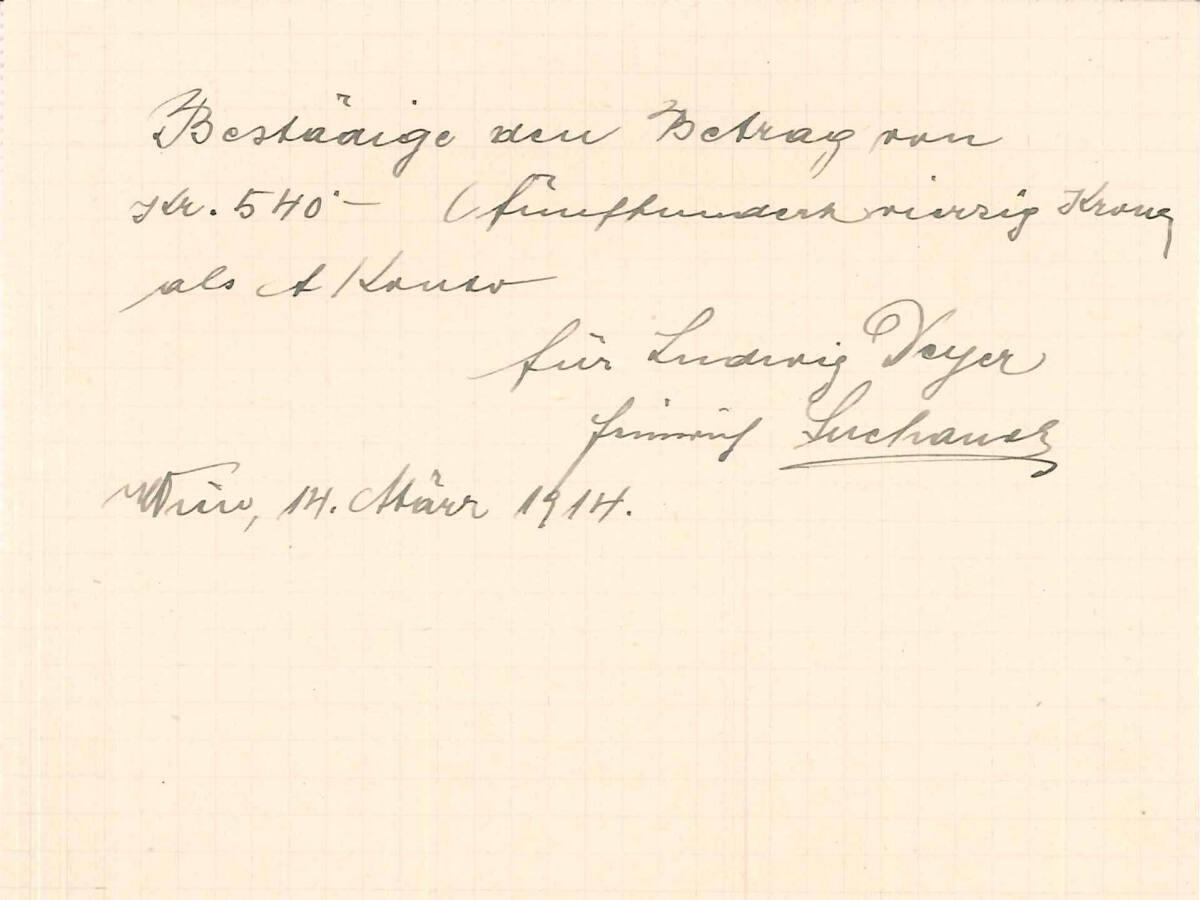 Bestädige den Betrag von
Kr. 540·– (fünfhundert vierzig Krone
als A Konto
für Ludwig Deyer
Heinrich Suchanek
Wien, 14. März 1914.